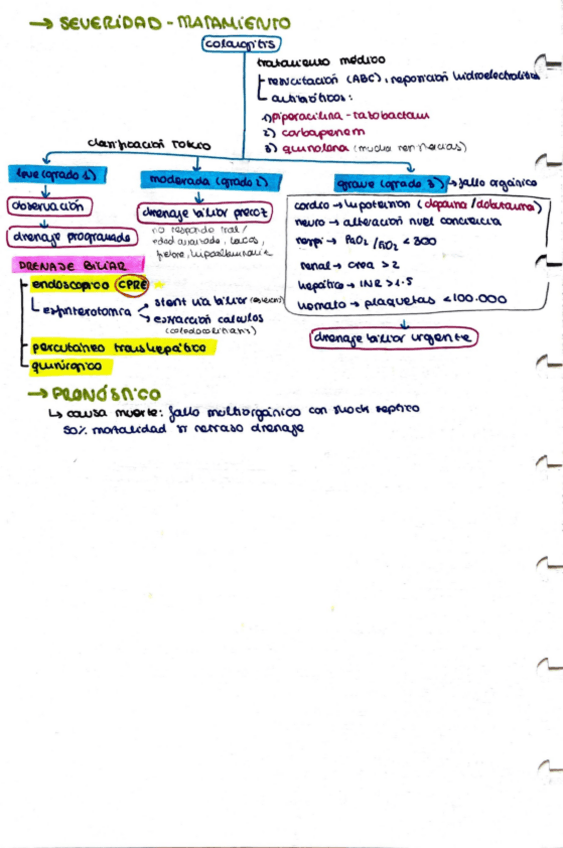 → SEVERIDAD - TRATAMIENTO
colangitis
tratamiento médico
resucitación (ABC), reposición hidroelectrolítica
antibióticos:
1) piperacilina - tazobactam
2) carbapenem
3) quinolona (mucha resistencias)
clasificación Tokio
leve (grado 1)
moderada (grado 2)
grave (grado 3) → fallo orgánico
observación
drenaje programado
drenaje biliar precoz
no responde trat /
edad avanzada, leucos,
fiebre, hipoalbuminemia
cardio → hipotensión (dopamina / dobutamina)
neuro → alteración nivel conciencia
respi → PaO2 / FiO2 < 300
renal → crea > 2
hepático → INR > 1.5
hemato → plaquetas < 100.000
drenaje biliar urgente
DRENAJE BILIAR
endoscópico CPRE
esfinterotomía
stent vía biliar
extracción cálculos
(coledocolitiasis)
percutáneo transhepático
quirúrgico
→ PRONÓSTICO
↳ causa muerte: fallo multiorgánico con shock séptico
50% mortalidad si retraso drenaje